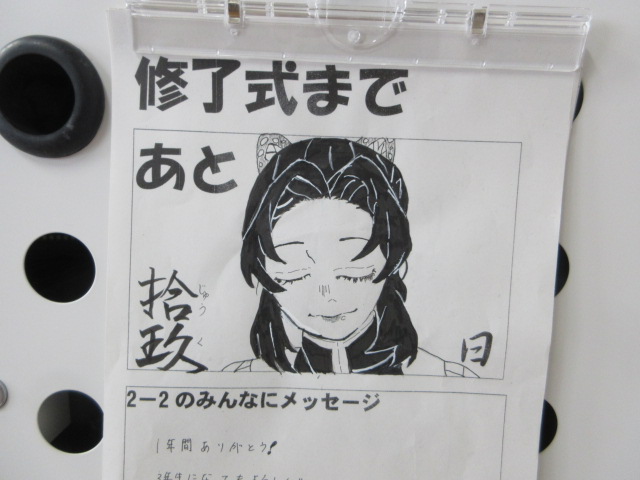 修了式まで
あと
拾玖
じゅうく
日
2−2のみんなにメッセージ
1年間ありがとう!